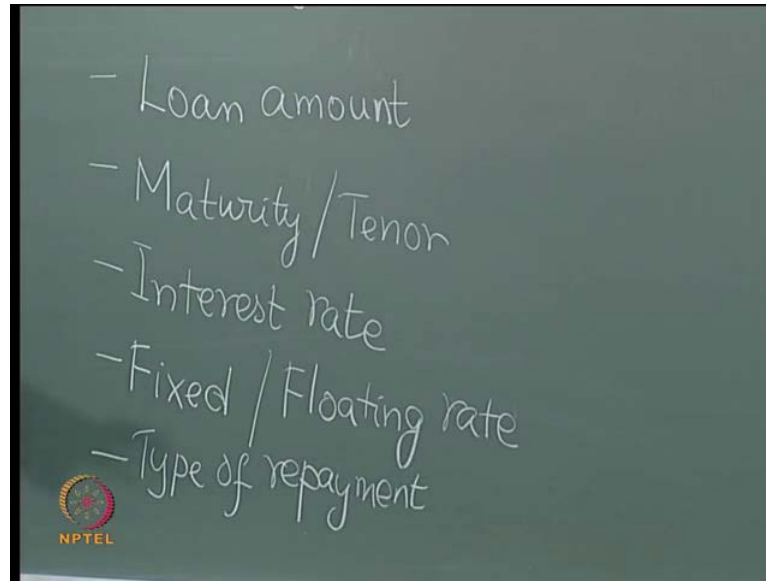 - Loan amount
- Maturity/Tenor
- Interest rate
- Fixed / Floating rate
- Type of repayment
NPTEL